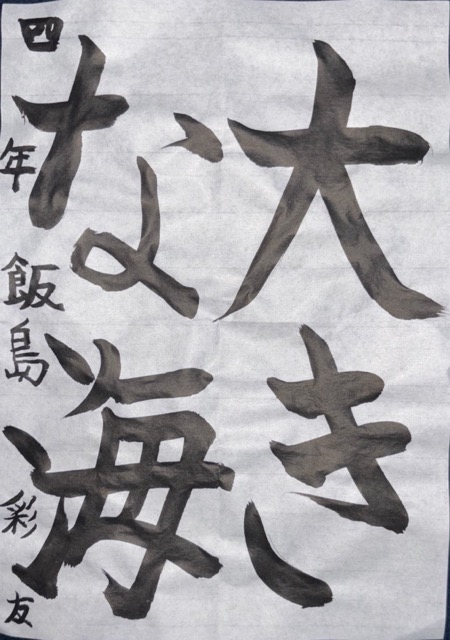 大き
な海
四年 飯島 彩友